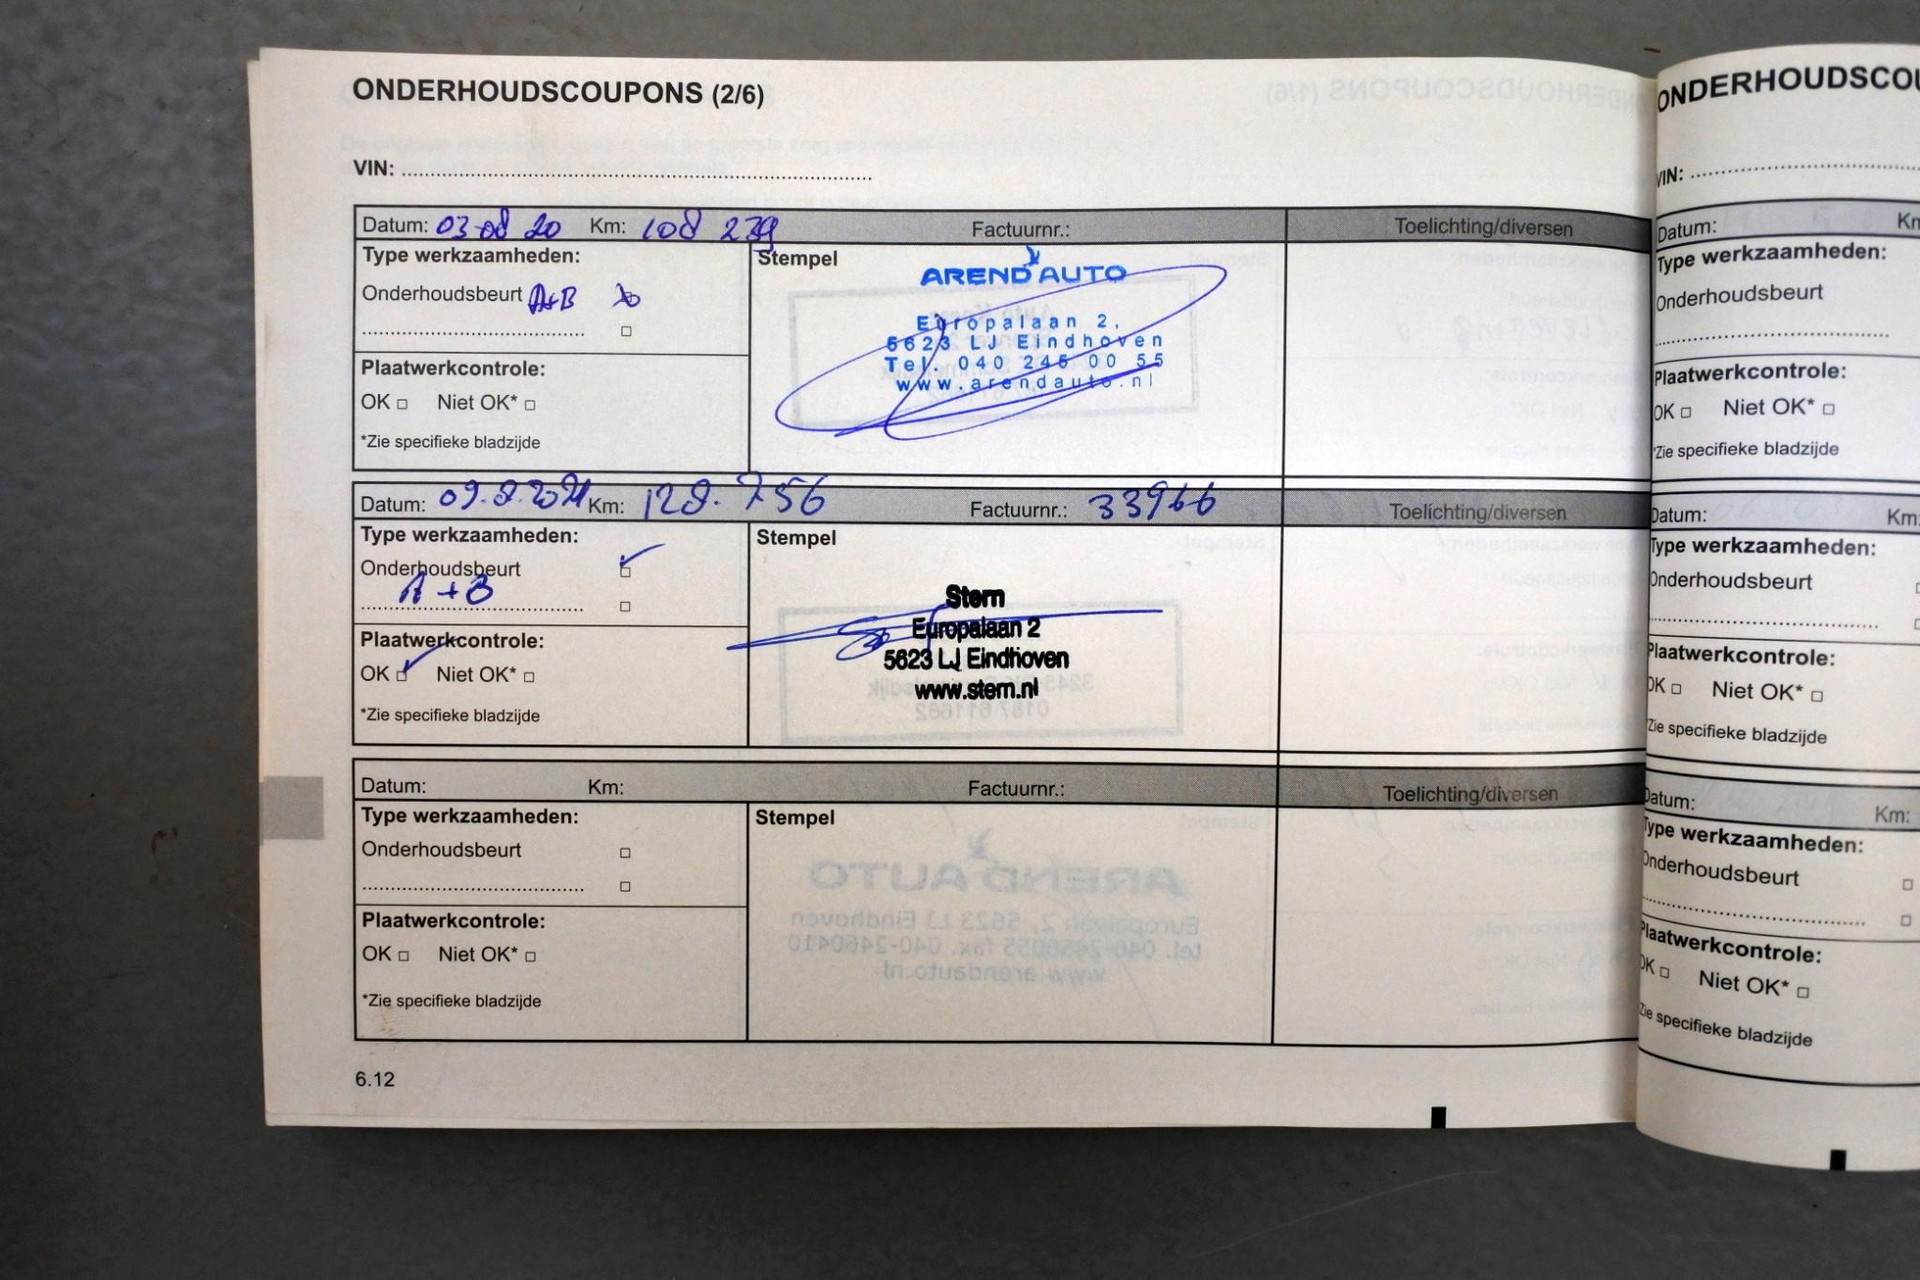 ONDERHOUDSCOUPONS (2/6)
VIN:
Datum: 03-08 20 Km: 108 239 Factuurnr.: Toelichting/diversen
Type werkzaamheden:
Onderhoudsbeurt A+B
Plaatwerkcontrole:
OK Niet OK*
*Zie specifieke bladzijde
Stempel
AREND AUTO
Europalaan 2,
5623 LJ Eindhoven
Tel. 040 245 00 55
www.arendauto.nl
Datum: 09.8.2021 Km: 128.756 Factuurnr.: 33966 Toelichting/diversen
Type werkzaamheden:
Onderhoudsbeurt
A+B
Plaatwerkcontrole:
OK Niet OK*
*Zie specifieke bladzijde
Stempel
Stern
Europalaan 2
5623 LJ Eindhoven
www.stern.nl
Datum: Km: Factuurnr.: Toelichting/diversen
Type werkzaamheden:
Onderhoudsbeurt
Plaatwerkcontrole:
OK Niet OK*
*Zie specifieke bladzijde
Stempel
6.12
ONDERHOUDSCOU
VIN:
Datum: Km
Type werkzaamheden:
Onderhoudsbeurt
Plaatwerkcontrole:
OK Niet OK*
*Zie specifieke bladzijde
Datum: Km:
Type werkzaamheden:
Onderhoudsbeurt
Plaatwerkcontrole:
OK Niet OK*
*Zie specifieke bladzijde
Datum: Km:
Type werkzaamheden:
Onderhoudsbeurt
Plaatwerkcontrole:
OK Niet OK*
Zie specifieke bladzijde